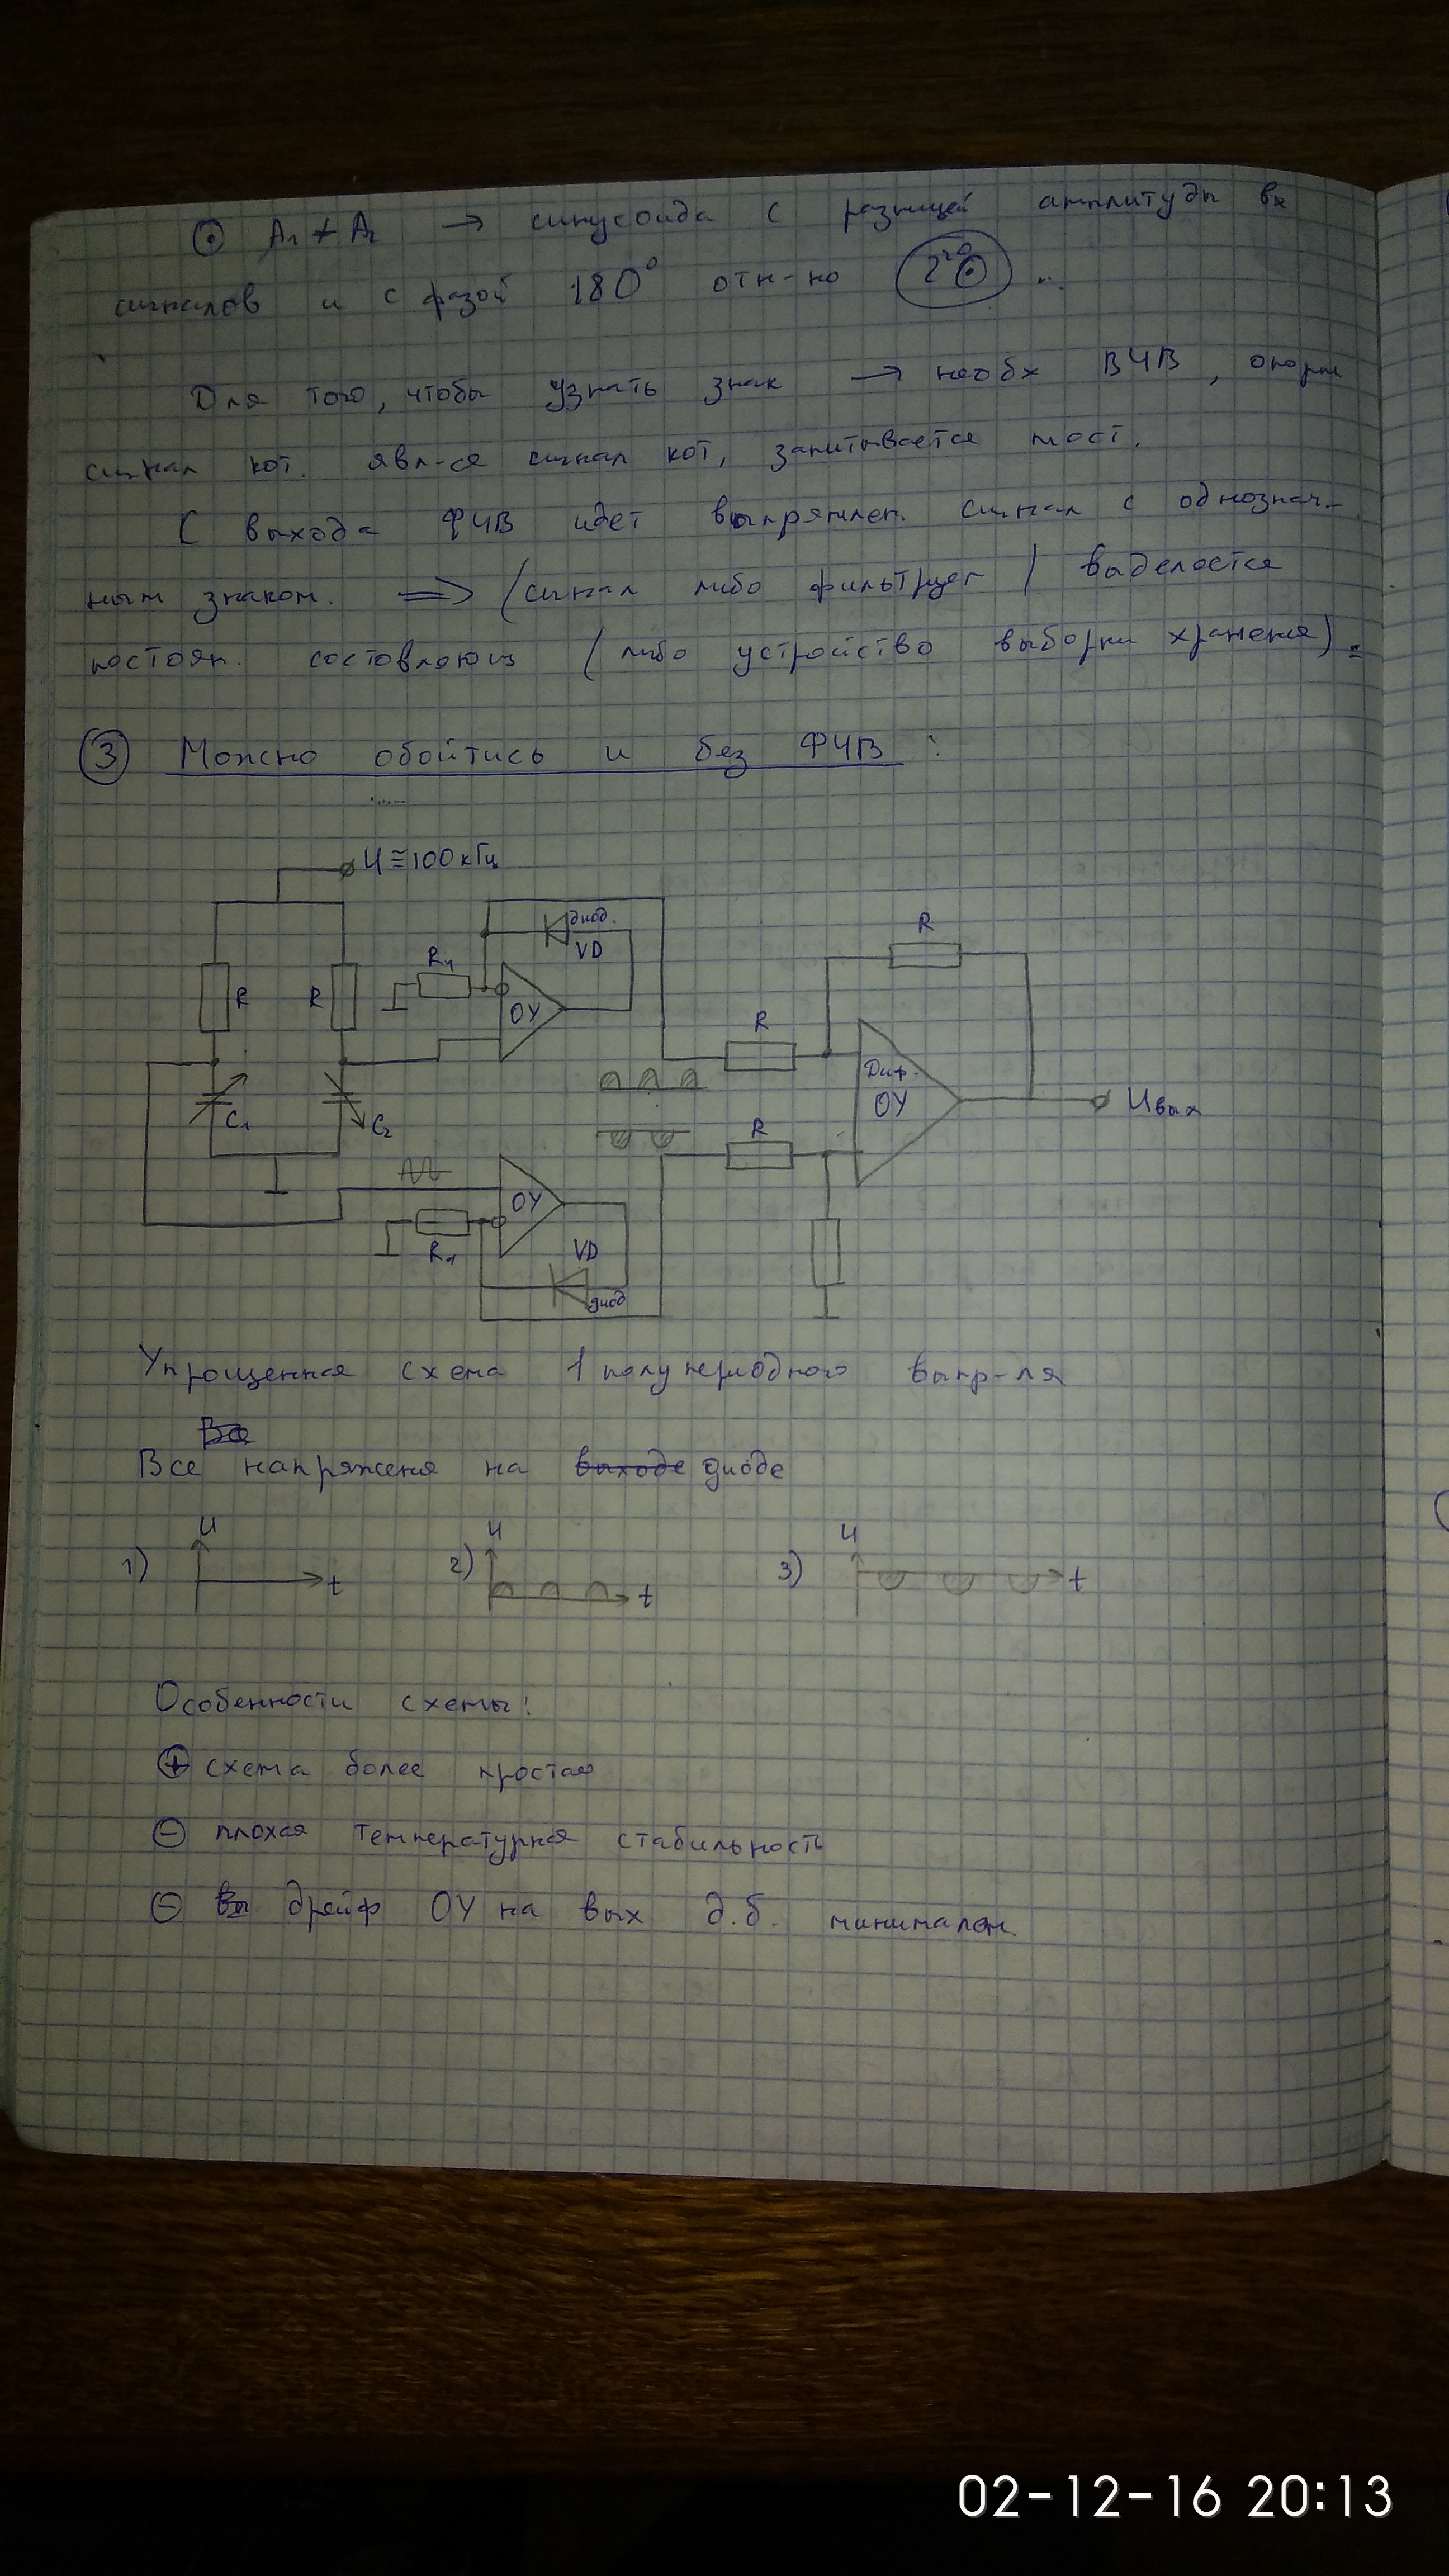 ⊙ A₁ ≠ A₂ → синусоида с разницей амплитуды вх
сигналов и с фазой 180° отн-но 2го⊙ ...
Для того, чтобы узнать знак → необх ВЧВ, опорн
сигнал кот. явл-ся сигнал кот, запитывается мост.
С выхода ФЧВ идет выпрямлен. сигнал с однознач-
ным знаком. ⇒ (сигнал либо фильтруют / выделяется
постоян. составляющ (либо устройство выборки хранения) =
③ Можно обойтись и без ФЧВ :
U ≅ 100 кГц
диод.
VD
R
R₁
R
R
ОУ
R
Диф.
ОУ
C₁
C₂
R
Uвых
ОУ
R₁
VD
диод
Упрощенная схема 1 полупериодного выпр-ля
Все
Все напряженя на выходе диоде
1) U t
2) U t
3) U t
Особенности схемы:
⊕ схема более простая
⊖ плохая температурная стабильность
⊖ Вы дрейф ОУ на вых д.б. минимален.
02-12-16 20:13